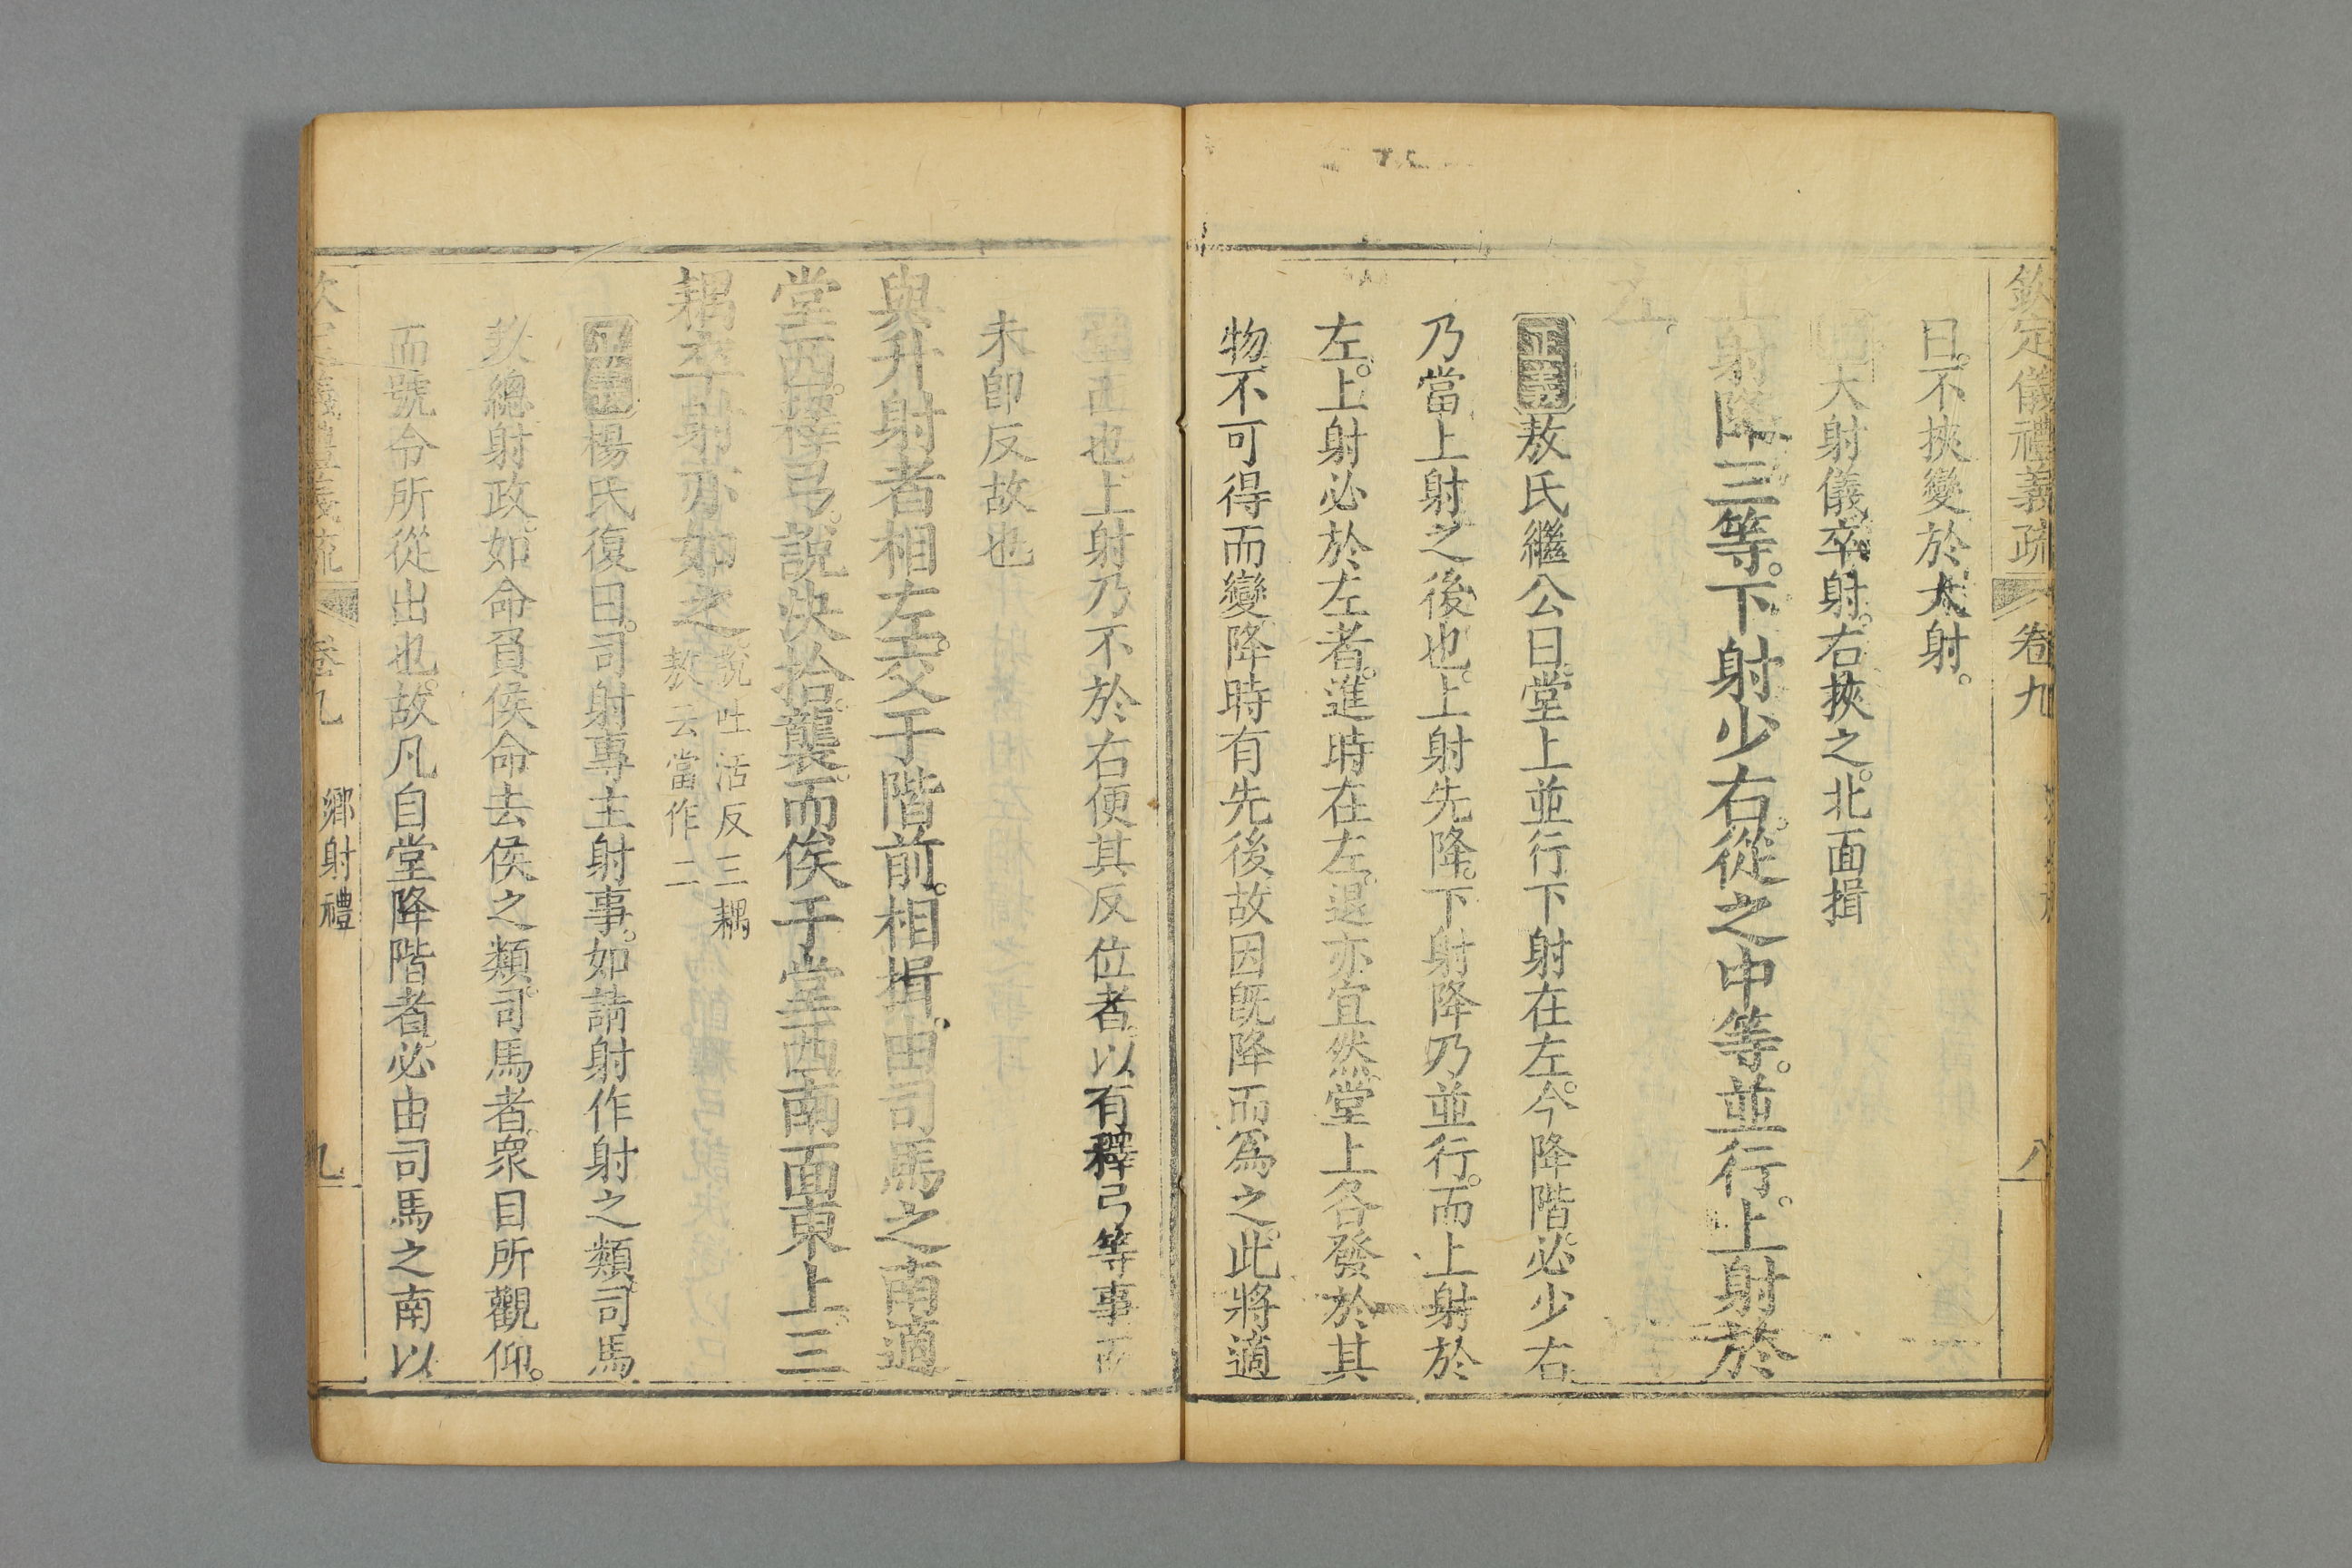 欽定儀禮義疏 卷九 八
曰。不挾變於大射。
大射儀卒射。右挾之。北面揖
上射降三等。下射少右。從之中等。並行。上射於
左。
正義敖氏繼公曰。堂上並行下射在左。今降階。必少右
乃當上射之後也。上射先降。下射降乃並行。而上射於
左。上射必於左者。進時在左。退亦宜然堂上各發於其
物。不可得而變降時有先後故因旣降而爲之。此將適
堂西也上射乃不於右便其反位者。以有釋弓等事而
未卽反故也
與升射者相左。交于階前。相揖。由司馬之南適
堂西。釋弓。說決拾。襲。而俟于堂西南面東上。三
耦卒射亦如之說吐活反三耦
敖云當作二
正義楊氏復曰。司射專主射事。如請射作射之類。司馬
欽總射政。如命負侯命去侯之類。司馬者。衆目所觀仰。
而號令所從出也。故凡自堂降階者。必由司馬之南以
卷九 鄉射禮 九